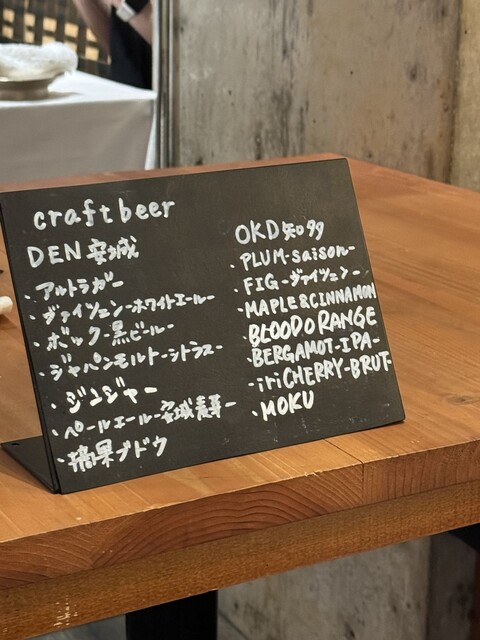 craft beer
DEN 安城
・アルトラガー
・ヴァイツェン-ホワイトエール-
・ボック-黒ビール-
・ジャパンモルト-シトラス-
・ジンジャー
・ペールエール-安城麦芽-
・摘果ブドウ
OKD 知多
・PLUM-saison-
・FIG-ヴァイツェン-
・MAPLE&CINNAMON
・BLOOD ORANGE
・BERGAMOT-IPA-
・iriCHERRY-BRUT-
・MOKU